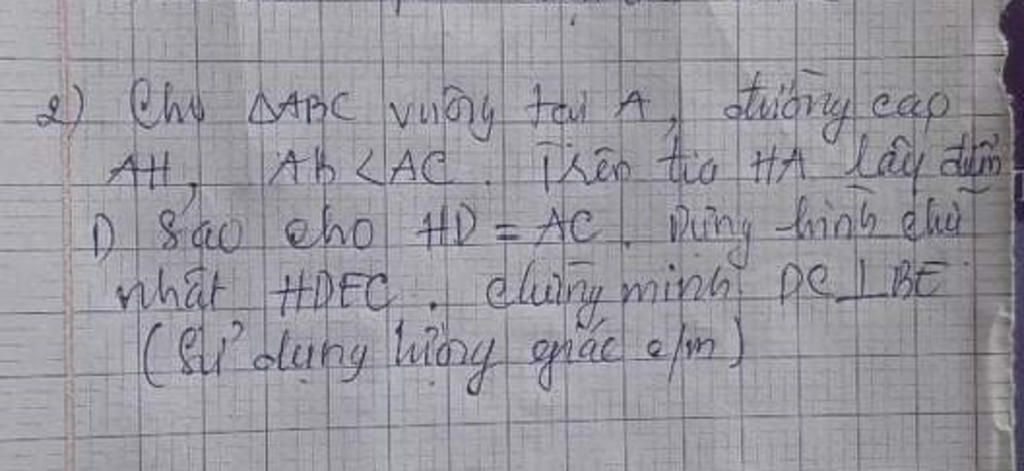 2) Cho △ABC vuông tại A, đường cap
AH, AB < AC. Trên tia HA lấy điểm
D sao cho HD = AC. Dựng hình chữ
nhật HDEC. chứng minh DC ⊥ BE
(Sử dụng lượng giác c/m)